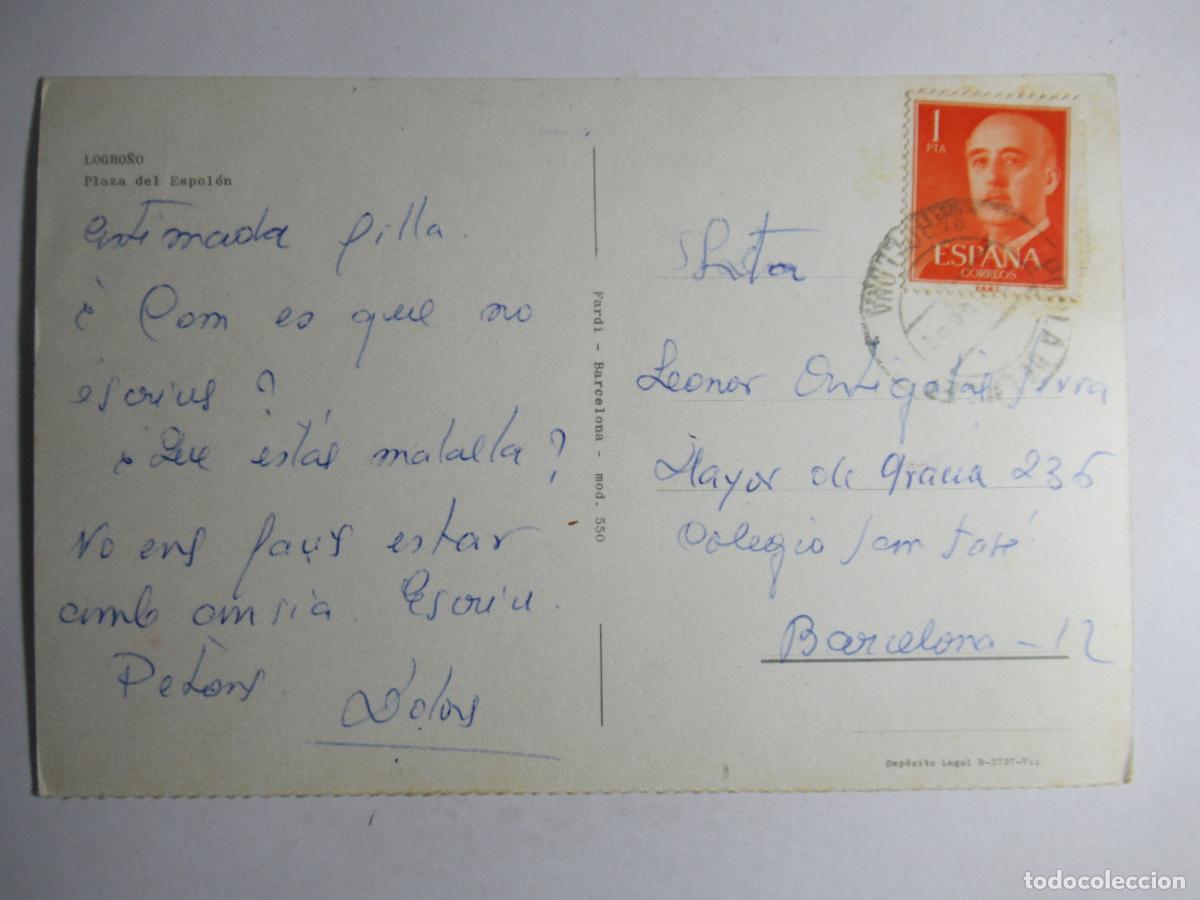 LOGROÑO
Plaza del Espolón
Estimada filla.
¿Com es que no
escrius?
¿Que estás malalta?
No ens faus estar
amb ansia. Escriu.
Petons
Dolors
Fardi - Barcelona - mod. 550
1
PTA
ESPAÑA
CORREOS
F.N.M.T.
Srta
Leonor Serra
Mayor de Gracia 236
Colegio San José
Barcelona - 12
Depósito Legal B-3737-VII
todocoleccion